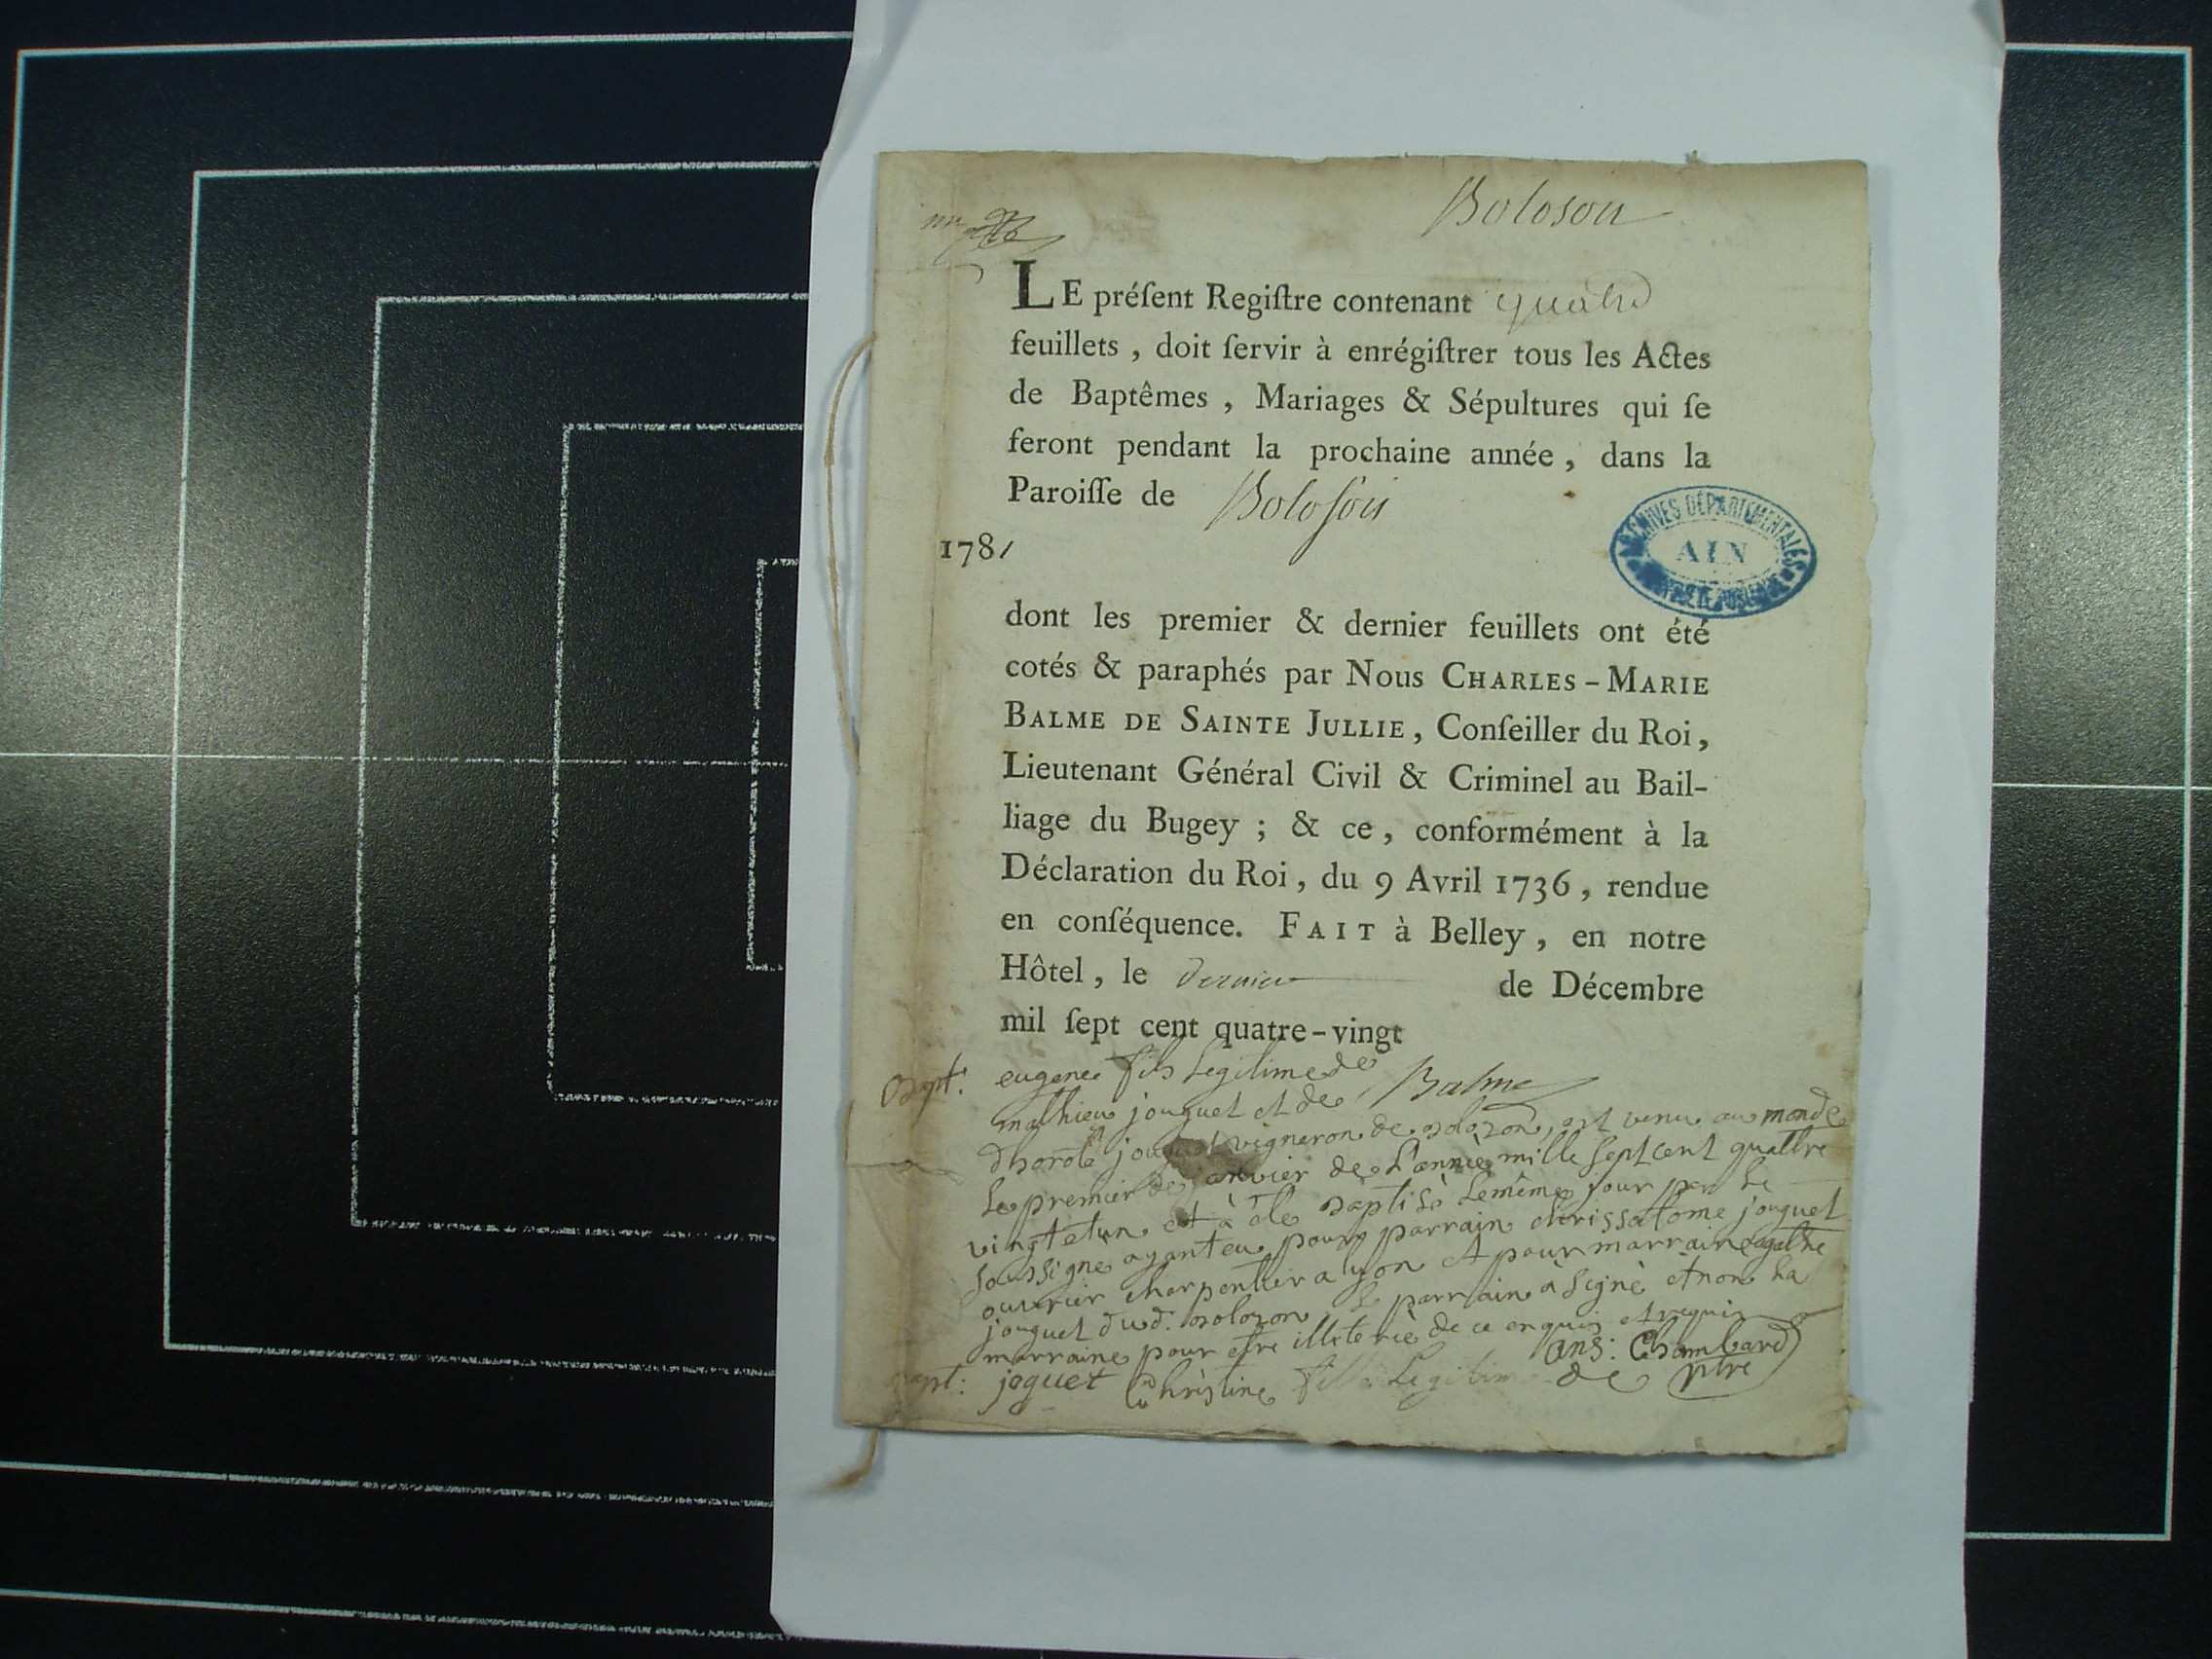 Boloson
LE préſent Regiſtre contenant quatre
feuillets , doit ſervir à enrégiſtrer tous les Actes
de Baptêmes , Mariages & Sépultures qui ſe
feront pendant la prochaine année , dans la
Paroiſſe de Boloſon
1781
ARCHIVES DÉPARTEMENTALES
AIN
dont les premier & dernier feuillets ont été
cotés & paraphés par Nous CHARLES-MARIE
BALME DE SAINTE JULLIE, Conſeiller du Roi,
Lieutenant Général Civil & Criminel au Bail-
liage du Bugey ; & ce, conformément à la
Déclaration du Roi, du 9 Avril 1736, rendue
en conſéquence. FAIT à Belley, en notre
Hôtel, le dernier de Décembre
mil ſept cent quatre-vingt
Bapt: eugene fils Legitime de Balme
mathieu jouguet et de
jouguet vigneron de bolozon, est venu au monde
Le premier de janvier de L'année mille sept cent quattre
vingt et un et à éte baptisé Le même jour par Le
soussigné ayant eu pour parrain chrissostome jouguet
ouvrier charpentier a lyon et pour marraine agathe
jouguet dud: bolozon Le parrain à signé et non La
marraine pour estre illeterée de ce enquis et requis
joguet ans: Chambard ptre
bapt: Christine fille Legitime de